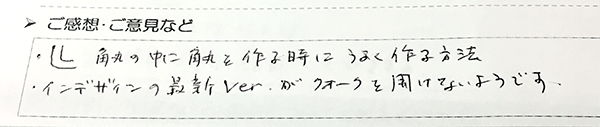 ➤ ご感想・ご意見など
・ 角丸の中に角丸を作る時にうまく作る方法
・インデザインの最新Ver.がクォークを開けてないようです。